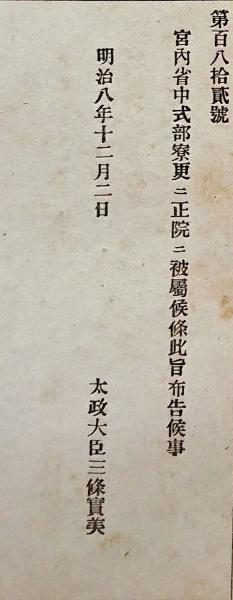 第百八拾貳號
宮內省中式部寮更ニ正院ニ被屬候條此旨布告候事
明治八年十二月二日
太政大臣三條實美